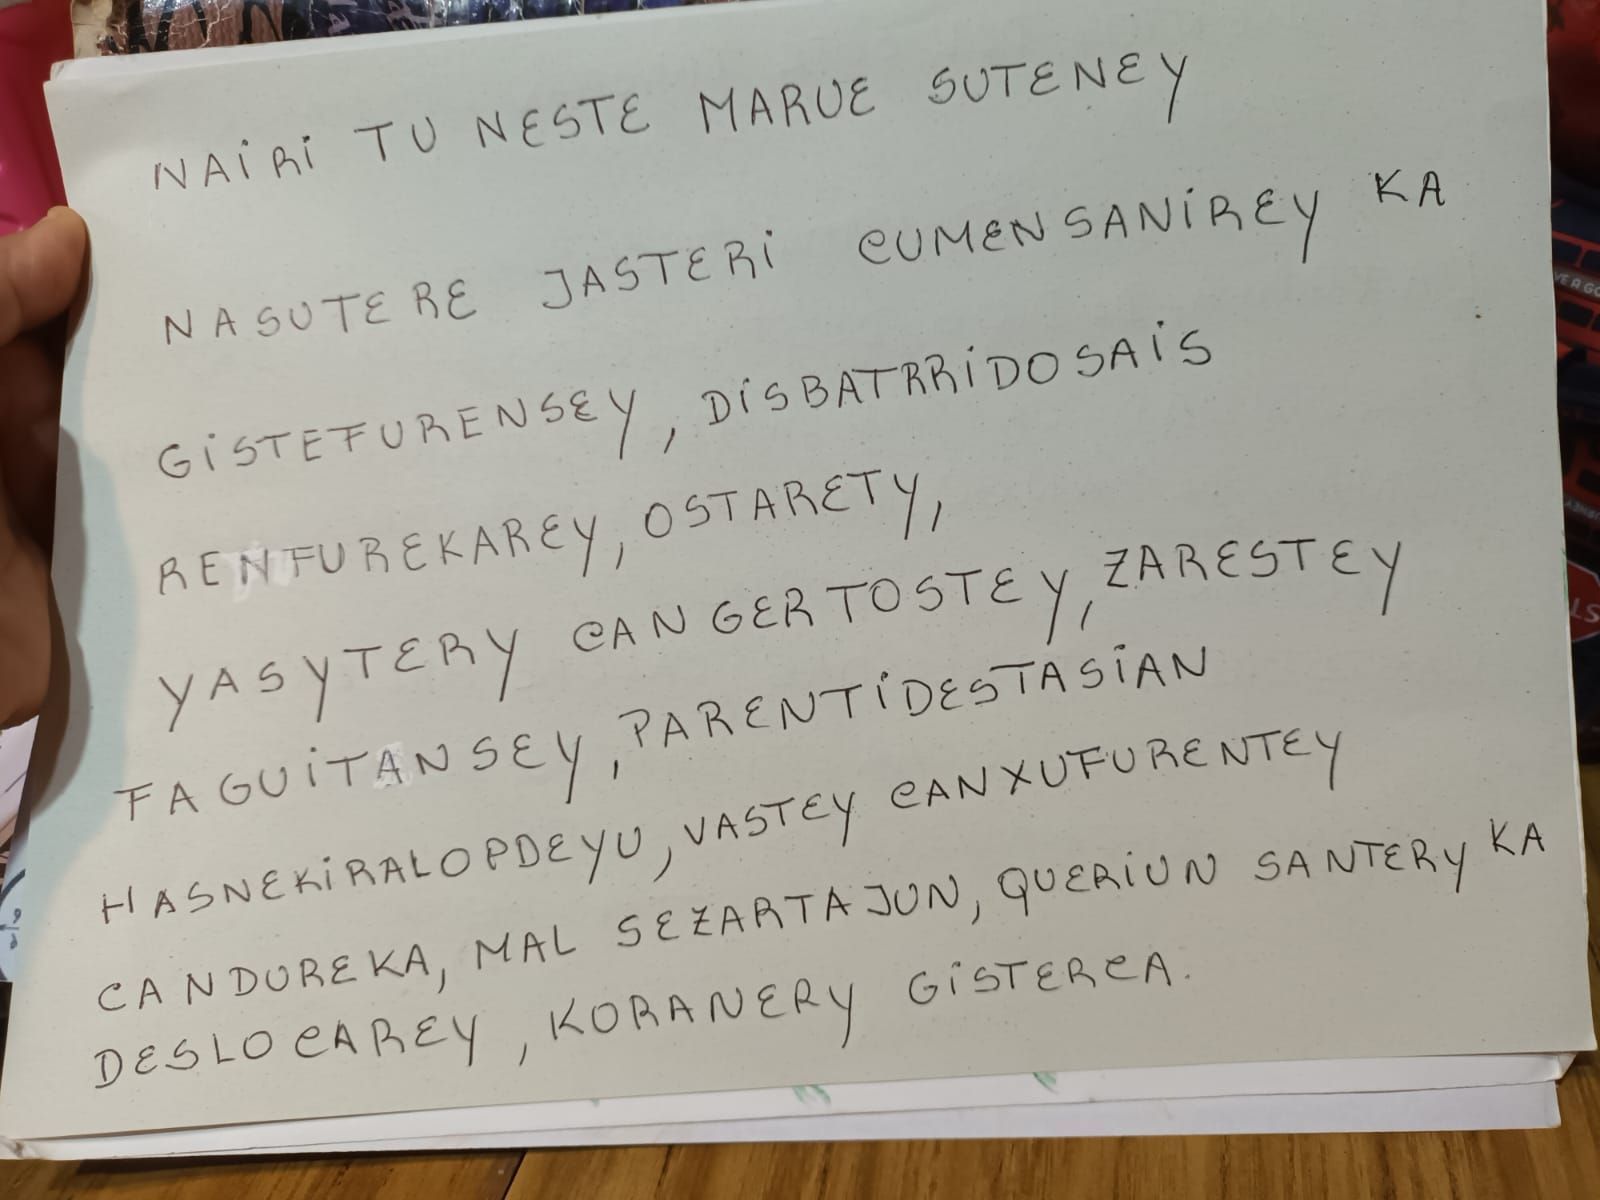 NAIRI TU NESTE MARUE SUTENEY
NASUTERE JASTERI CUMENSANIREY KA
GISTEFURENSEY, DISBATRRIDOSAIS
RENFUREKAREY, OSTARETY,
YASYTERY CANGERTOSTEY, ZARESTEY
FAGUITANSEY, PARENTIDESTASIAN
HASNEKIRALOPDEYU, VASTEY CANXUFURENTEY
CANDUREKA, MAL SEZARTAJUN, QUERIUN SANTERY KA
DESLOCAREY, KORANERY GISTERCA.